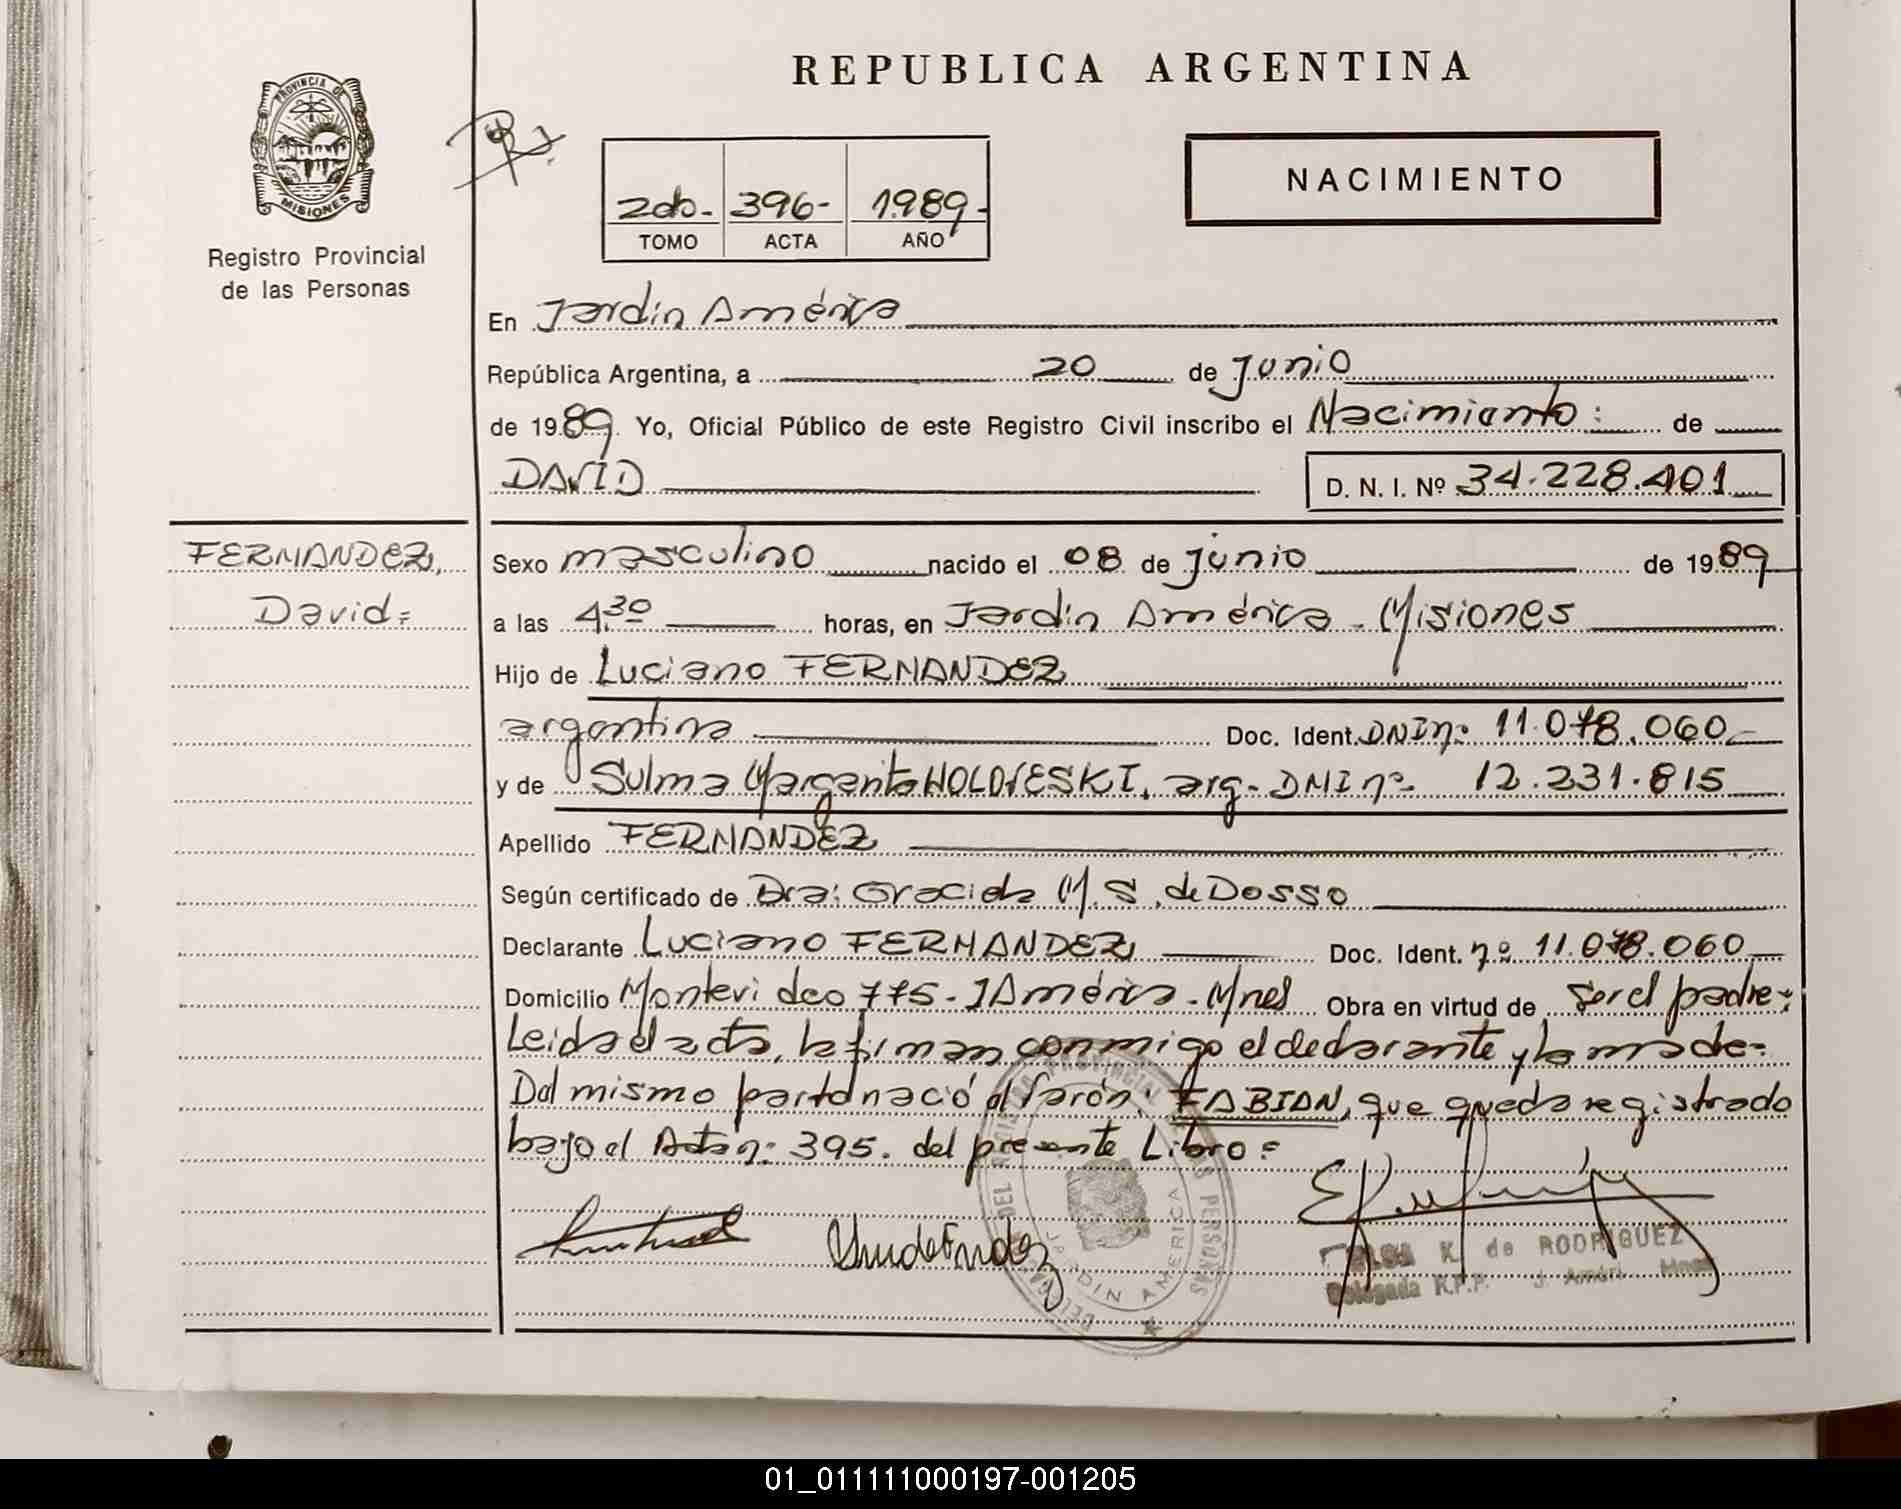 REPUBLICA ARGENTINA
PROVINCIA DE
MISIONES
Registro Provincial
de las Personas
2do.- 396- 1989.-
TOMO ACTA AÑO
NACIMIENTO
En Jardín América
República Argentina, a 20 de Junio
de 1989. Yo, Oficial Público de este Registro Civil inscribo el Nacimiento: de
DAVID D. N. I. Nº 34.228.401
FERNANDEZ,
David=
Sexo masculino nacido el 08 de junio de 1989
a las 4.30 horas, en Jardín América - Misiones
Hijo de Luciano FERNANDEZ
argentina Doc. Ident. DNI nº 11.078.060
y de Sulma Margarita HOLOVESKI, arg.- DNI nº 12.231.815
Apellido FERNANDEZ
Según certificado de Dra: Graciela M. S. de Dosso
Declarante Luciano FERNANDEZ Doc. Ident. nº 11.078.060
Domicilio Montevideo 775- J América - Mnes Obra en virtud de ser el padre=
Leida el acta, la firman conmigo el declarante y la madre=
Del mismo parto nació el Varón: FABIAN, que queda registrado
bajo el Acta nº: 395. del presente Libro=
DEL REGISTRO PROVINCIAL DE LAS PERSONAS
JARDIN AMERICA
K. de RODRIGUEZ
Delegada R.P.P. J. Améri Mnes
01_011111000197-001205